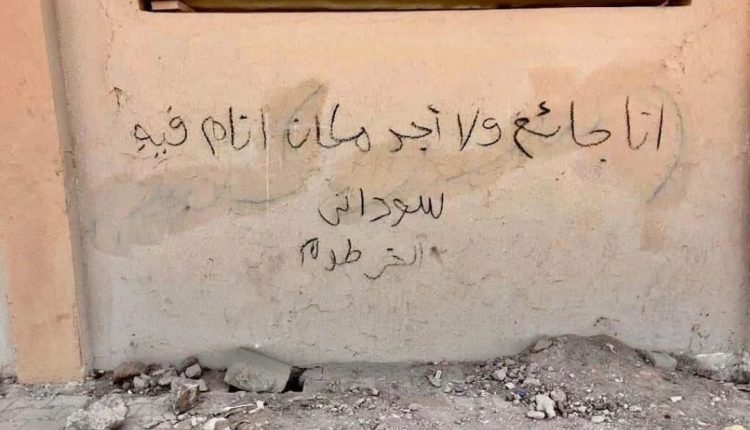 انا جائع ولا أجد مكان انام فيه
سوداني
الخرطوم